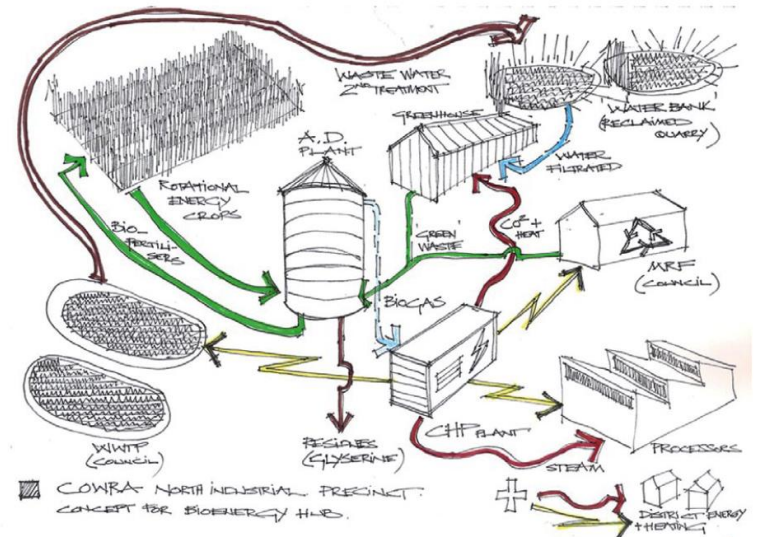 WASTE WATER
2ND TREATMENT
GREENHOUSE
WATER BANK
(RECLAIMED
QUARRY)
A.D.
PLANT
WATER
FILTRATED
ROTATIONAL
ENERGY
CROPS
BIO-
FERTILI-
SERS
'GREEN'
WASTE
CO2+
HEAT
MRF
(COUNCIL)
BIOGAS
WWTP
(COUNCIL)
RESIDUES
(GLYSERINE)
CHP PLANT
STEAM
PROCESSORS
COWRA - NORTH INDUSTRIAL PRECINCT.
CONCEPT FOR BIOENERGY HUB.
DISTRICT ENERGY
+ HEATING